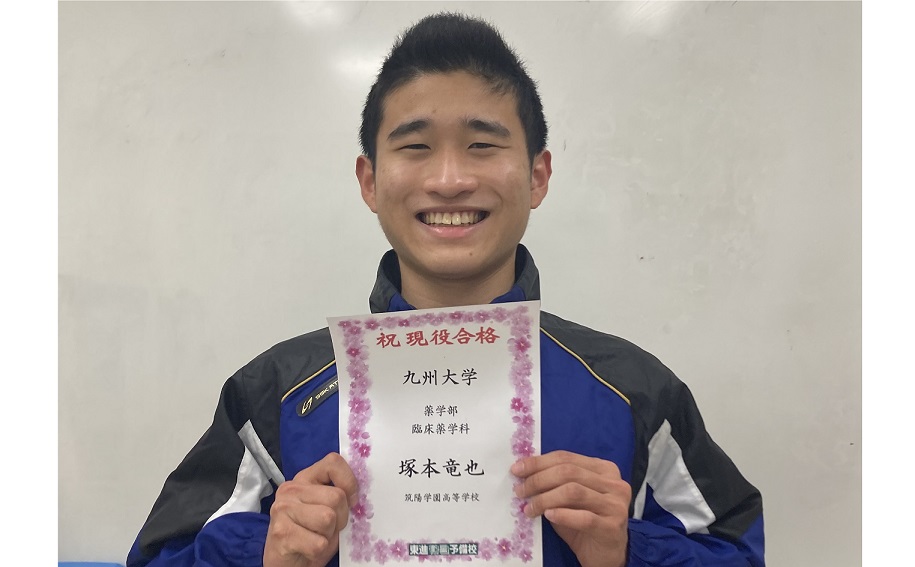 祝 現役合格
九州大学
薬学部
臨床薬学科
塚本竜也
筑陽学園高等学校
東進衛星予備校